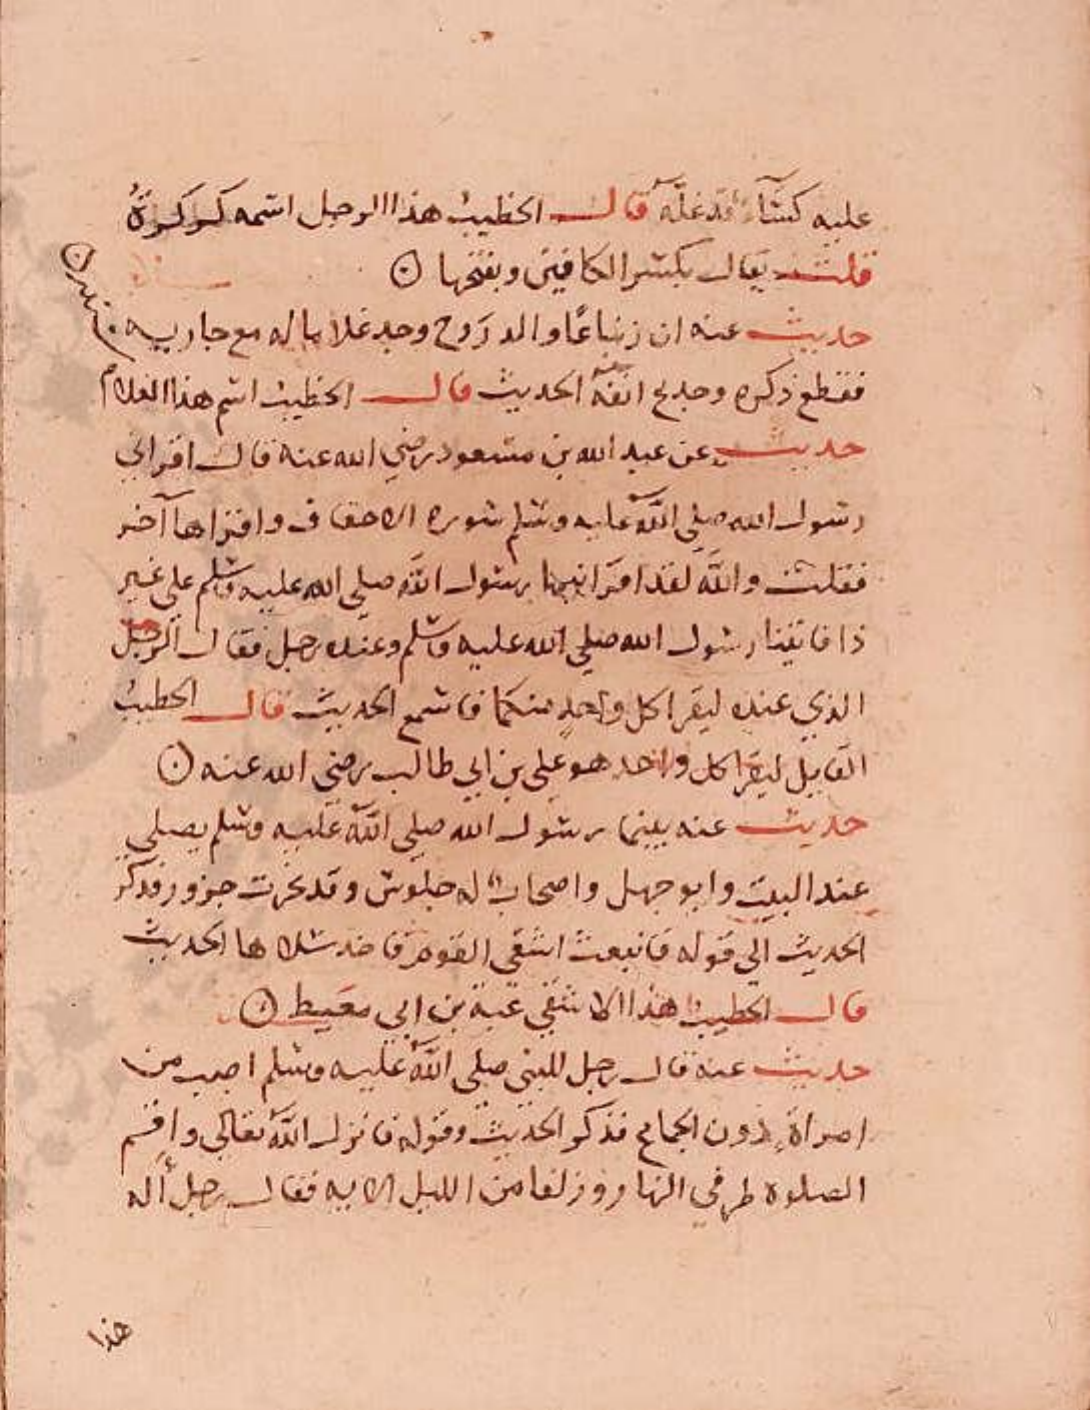 عليه كساء قد غله قال الخطيب هذا الرجل اسمه كركرة
قلت يقال بكسر الكافين وبفتحها
حديث عنه ان زنباعا والد روح وجد غلاما له مع جاريه
فقطع ذكره وجدع انفه الحديث قال الخطيب اسم هذا الغلام
سندر
حديث عن عبد الله بن مسعود رضي الله عنه قال اقراني
رسول الله صلى الله عليه وسلم سوره الاحقاف واقراها آخر
فقلت والله لقد اقرانيها رسول الله صلى الله عليه وسلم على غير
ذا فاتينا رسول الله صلى الله عليه وسلم وعنده رجل فقال الرجل
الذي عنده ليقرا كل واحد منكما فاسمع الحديث قال الخطيب
القايل ليقرا كل واحد هو علي بن ابي طالب رضي الله عنه
حديث عنه بينما رسول الله صلى الله عليه وسلم يصلي
عند البيت وابو جهل واصحاب له جلوس وقد نحرت جزور فذكر
الحديث الي قوله فانبعث اشقى القوم فاخذ سلاها الحديث
قال الخطيب هذا الاشقى عقبة بن ابي معيط
حديث عنه قال رجل للنبي صلى الله عليه وسلم اصبت من
امراة دون الجماع فذكر الحديث وقوله فانزل الله تعالى واقم
الصلوة طرفي النهار وزلفا من الليل الايه فقال رجل أله
هذا